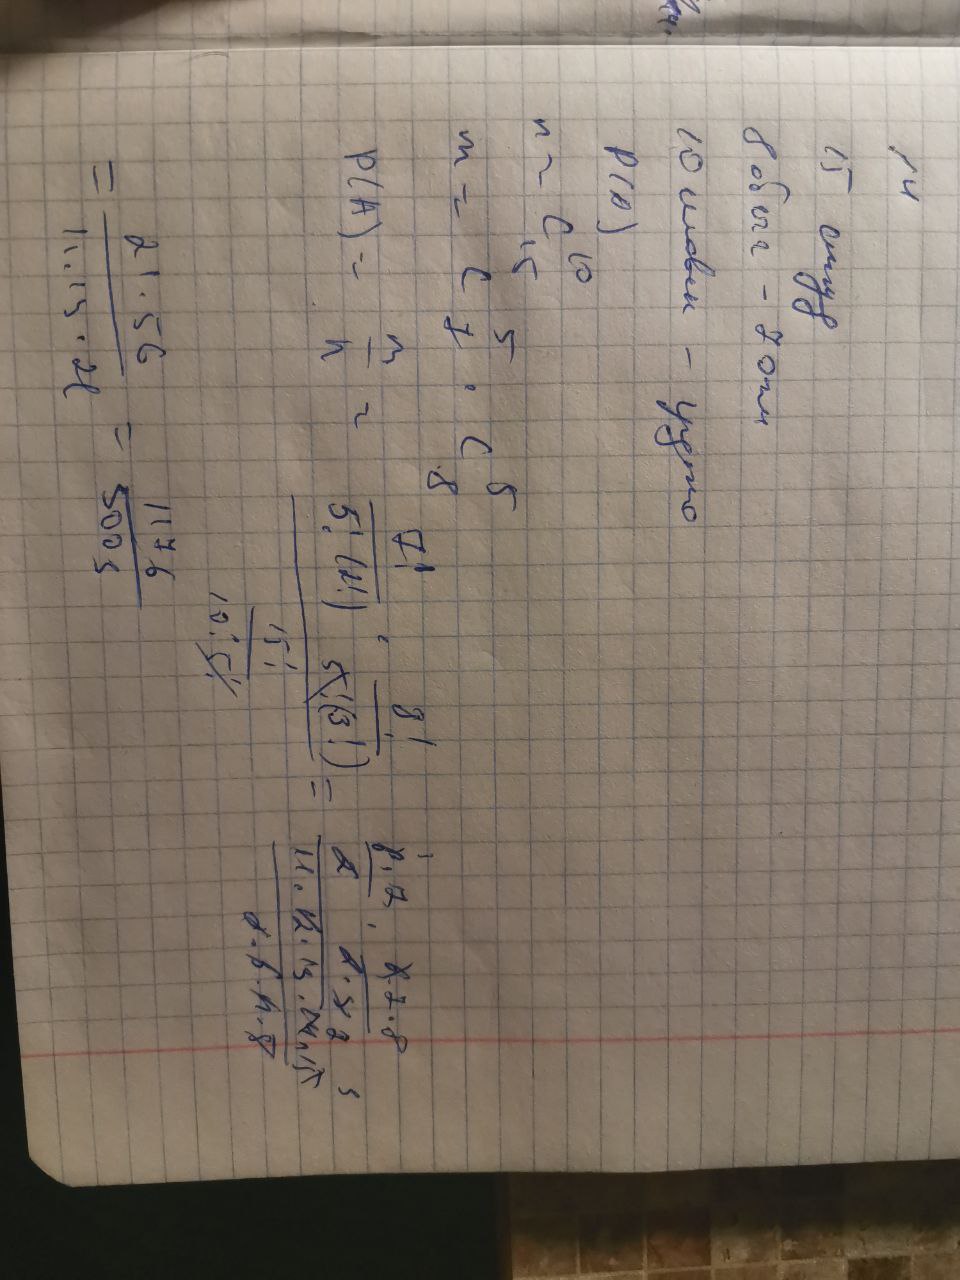 14
15 студ
8 обыч - 7 отл
10 человек -
P(A)
n = C₁₅¹⁰
m = C₇⁵ · C₈⁵
P(A) = m/n = (7!/(5!(2!)) · 8!/(5!(3!)))/(15!/(10!5!)) = (6·7/2 · 6·7·8/(2·3))/(11·12·13·14·15/(2·3·4·5))
= 21·56/(11·13·21) = 1176/3003